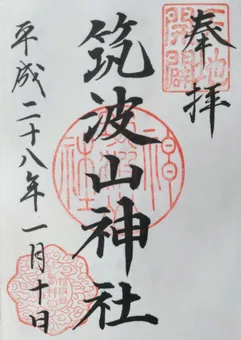 奉拝
天地開闢
筑波山神社
平成二十八年一月十日